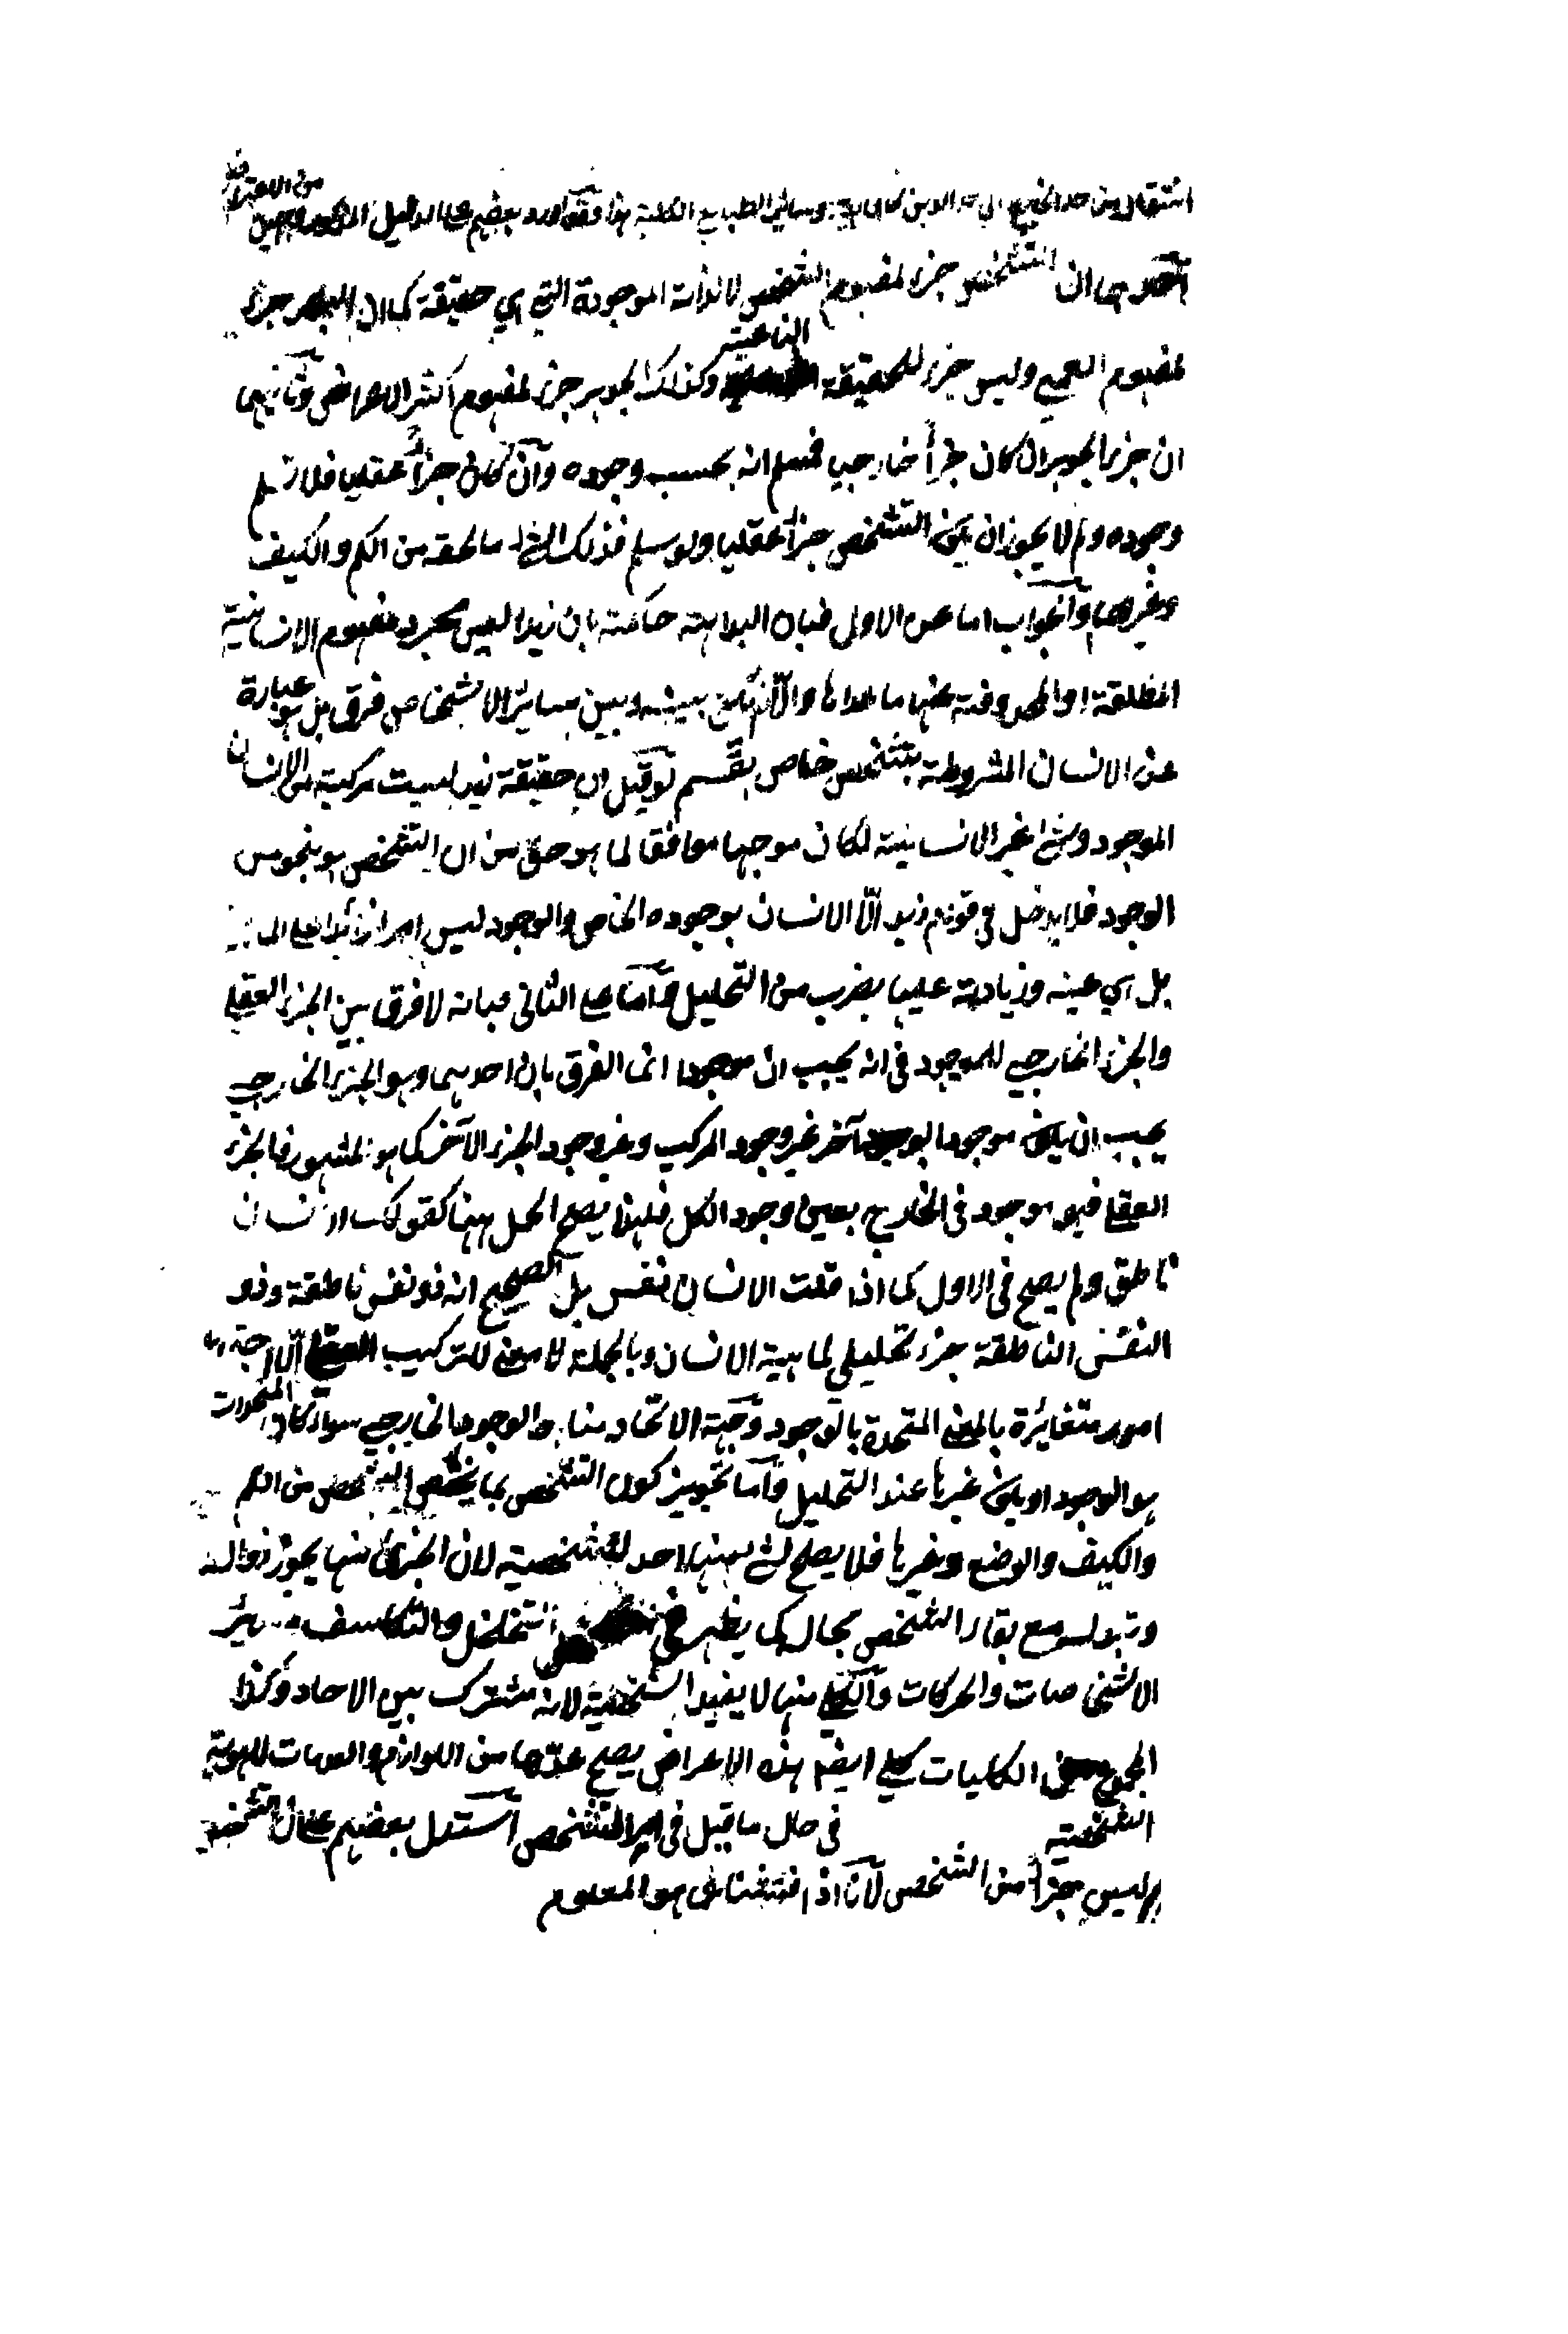 اشتقاق من حد الجميع الى حد الدين كما في الطبايع الكلية هذا وقد اورد بعضهم على الدليل المذكور وجهين من الاعتراض
احدهما ان التشخص جزء لمفهوم الشخص لا لذاته الموجودة التي هي حقيقة كما ان البصر جزء
لمفهوم العمى وليس جزء للحقيقة الناعتية وكذلك الجوهر جزء لمفهوم اكثر الاعراض وثانيهما
ان جزء الجوهر ان كان جزأ خارجيا فمسلم انه يحسب وجوده وان كان جزأ عقليا فلا نسلم
وجوده ولم لا يجوز ان يكون التشخص جزأ عقليا ولو سلم فذلك الشئ ما لحقه من الكم والكيف
وغيرهما والجواب اما عن الاول فبان البداهة حاكمة بان زيدا ليس مجرد مفهوم الانسانية
المطلقة او المحذوفة عنها ما عداها والا لم يكن بينه وبين ساير الاشخاص فرق بل هو عبارة
عن الانسان المشروطة بتشخص خاص نعم لو قيل ان حقيقة زيد ليست مركبة من الانسان
الموجود وشئ غير الانسانية لكان موجها موافقا لما هو حق من ان التشخص هو بنحو من
الوجود فلا يدخل في قوام زيد الا الانسان بوجوده الخاص والوجود ليس امرا زائدا على الماهية
بل هي عينه وزيادته عليها بضرب من التحليل واما على الثاني فبانه لا فرق بين الجزء العقلي
والجزء الخارجي للموجود في انه يجب ان موجودا انما الفرق بان احدهما وهو الجزء الخارجي
يجب ان يكون موجودا بوجود آخر غير وجود المركب وغير وجود الجزء الآخر كما هو المشهور فالجزء
العقلي فهو موجود في الخارج بعين وجود الكل فلهذا يصح الحمل ههنا كقولك الانسان
ناطق ولم يصح في الاول كما اذا قلت الانسان نفس بل الصحيح انه ذو نفس ناطقة وذو
النفس الناطقة جزء تحليلي لماهية الانسان وبالجملة لا معنى للتركيب العقلي الا اجتماع
امور متغائرة بالمعنى المتحدة بالوجود وجهة الاتحاد هنا هو الوجود الخارجي سواء كان المتحدات
هو الوجود او يكون غيرها عند التحليل واما تجويز كون التشخص بما يختص الشخص من الكم
والكيف والوضع وغيرها فلا يصلح شئ منها احد للشخصية لان الجزئي منها يجوز زواله
وتبدله مع بقاء الشخص بحاله كما يظهر في التخلخل والتكاثف وساير
الاشخاصات والحركات والكلي منها لا يفيد الشخصية لانه مشترك بين الاحاد وكذا
المجموع من الكليات كلي ايضا هذه الاعراض يصح عدها من اللوازم والعلامات للهوية
الشخصية في حال ما قيل في امر التشخص استدل بعضهم على ان التشخص
ليس جزأ من الشخص لانا اذا فتشنا هو المعلوم